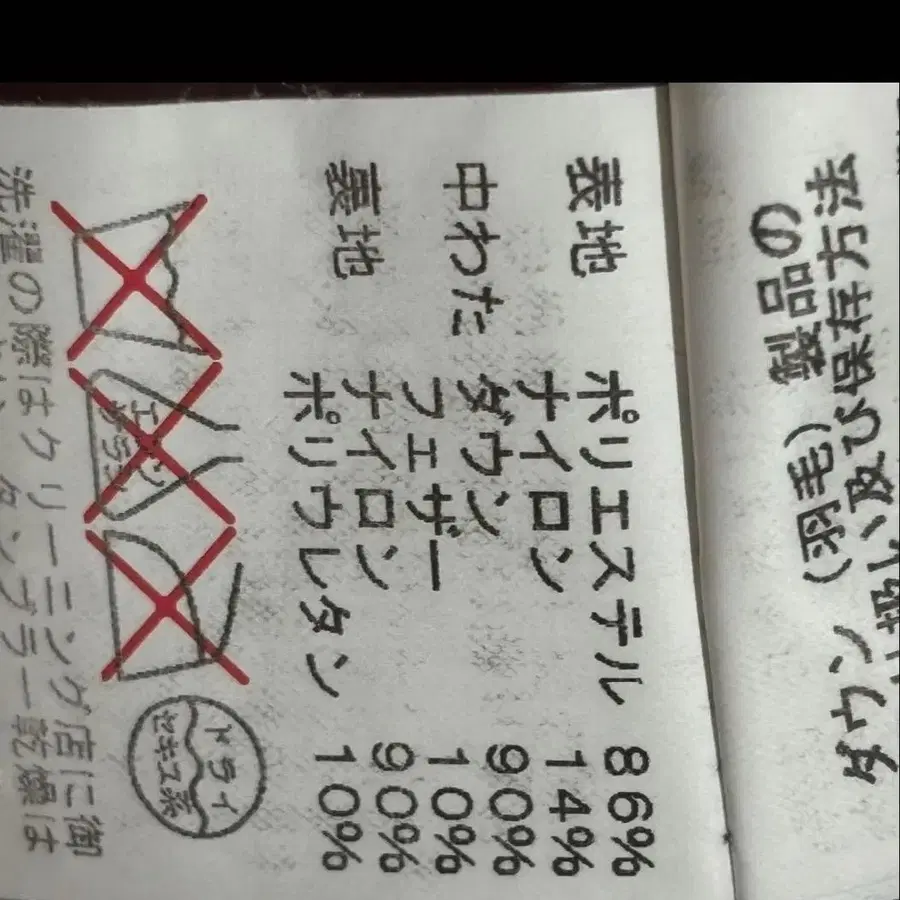 表地 ポリエステル 86%
ナイロン 14%
中わた ダウン 90%
フェザー 10%
裏地 ナイロン 90%
ポリウレタン 10%
エンソサラシ
ドライ
セキユ系
洗濯の際はクリーニング店に御
タンブラー乾燥は
ダウン(羽毛)製品の
扱い、及び保存方法